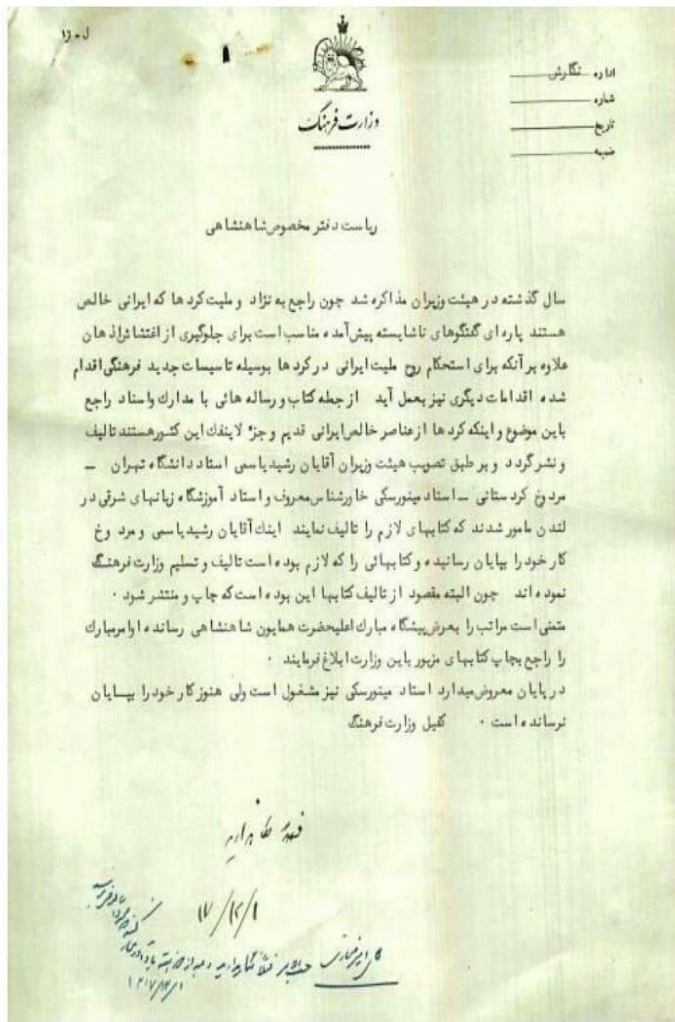 وزارت فرهنگ
اداره نگارش
شماره
تاریخ
ضمیمه
ریاست دفتر مخصوص شاهنشاهی
سال گذشته در هیئت وزیران مذاکره شد چون راجع به نژاد و ملیت کردها که ایرانی خالص
هستند پاره ای گفتگوهای ناشایسته پیش آمده مناسب است برای جلوگیری از اغتشاش اذهان
علاوه بر آنکه برای استحکام روح ملیت ایرانی در کردها بوسیله تاسیسات جدید فرهنگی اقدام
شده اقدامات دیگری نیز بعمل آید از جمله کتاب و رساله هائی با مدارك و اسناد راجع
باین موضوع و اینکه کردها از عناصر خالص ایرانی قدیم و جزء لاینفك این کشور هستند تالیف
و نشر گردد و بر طبق تصویب هیئت وزیران آقایان رشید یاسمی استاد دانشگاه تهران –
مردوخ کردستانی – استاد مینورسکی خاورشناس معروف و استاد آموزشگاه زبانهای شرقی در
لندن مامور شدند که کتابهای لازم را تالیف نمایند اینك آقایان رشید یاسمی و مردوخ
کار خود را بپایان رسانیده و کتابهائی را که لازم بوده است تالیف و تسلیم وزارت فرهنگ
نموده اند چون البته مقصود از تالیف کتابها این بوده است که چاپ و منتشر شود .
متمنی است مراتب را بعرض پیشگاه مبارك اعلیحضرت همایون شاهنشاهی رسانده اوامر مبارك
را راجع بچاپ کتابهای مزبور باین وزارت ابلاغ فرمایند .
در پایان معروض میدارد استاد مینورسکی نیز مشغول است ولی هنوز کار خود را بپایان
نرسانده است . کفیل وزارت فرهنگ
۱۷/۱۲/۱